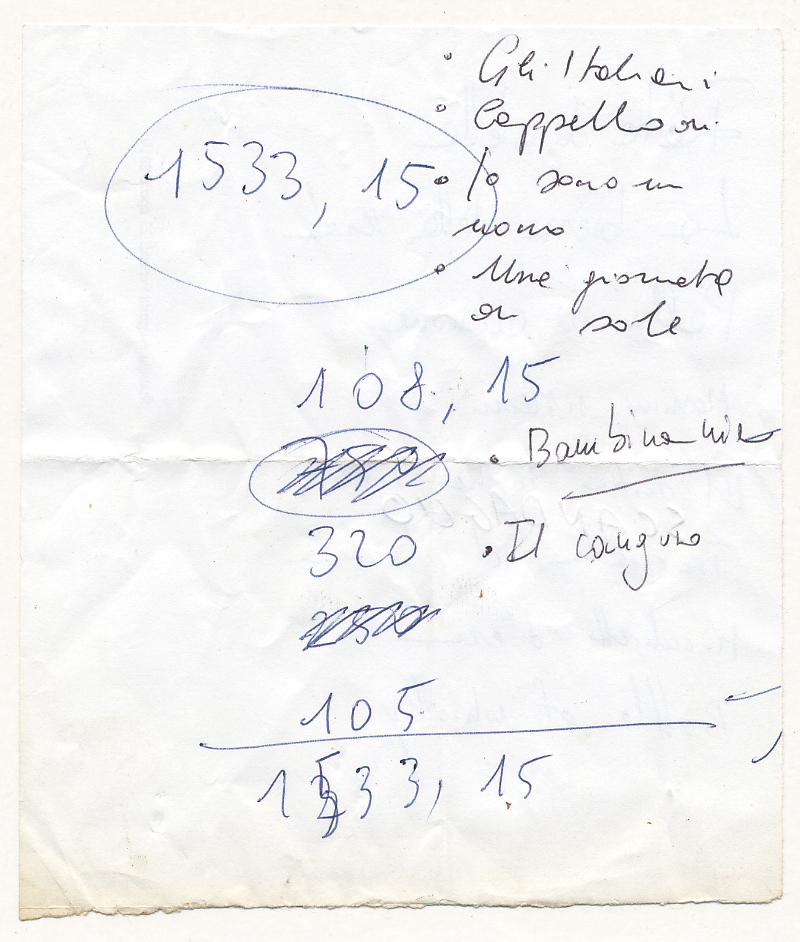 • Gli Italiani
• Cappelloni
1533, 15
• Io sono un
uomo
• Una giornata
di sole
108, 15
• Bambina mia
320
• Il canguro
105
1533, 15